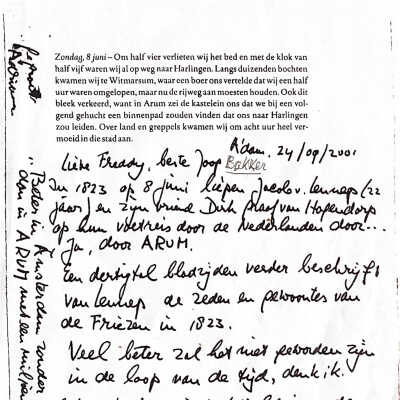 Zondag, 8 juni – Om half vier verlieten wij het bed en met de klok van
half vijf waren wij al op weg naar Harlingen. Langs duizenden bochten
kwamen wij te Witmarsum, waar een boer ons vertelde dat wij een half
uur waren omgelopen, maar nu de rijweg aan moesten houden. Ook dit
bleek verkeerd, want in Arum zei de kastelein ons dat we bij een vol-
gend gehucht een binnenpad zouden vinden dat ons naar Harlingen
zou leiden. Over land en greppels kwamen wij om acht uur heel ver-
moeid in die stad aan.
A'dam, 24/09/2001
Lieve Freddy, beste Joop Bakker
In 1823 op 8 juni liepen Jacob v. Lennep (22
jaar) en zijn vriend Dirk graaf van Hogendorp
op hun voetreis door de Nederlanden door...
Ja, door ARUM.
Een dertigtal bladzijden verder beschrijft
van Lennep de zeden en gewoontes van
de Friezen in 1823.
Veel beter zal het niet geworden zijn
in de loop van de tijd, denk ik.
"Beter in Amsterdam zonder
dan in ARUM met een miljoen